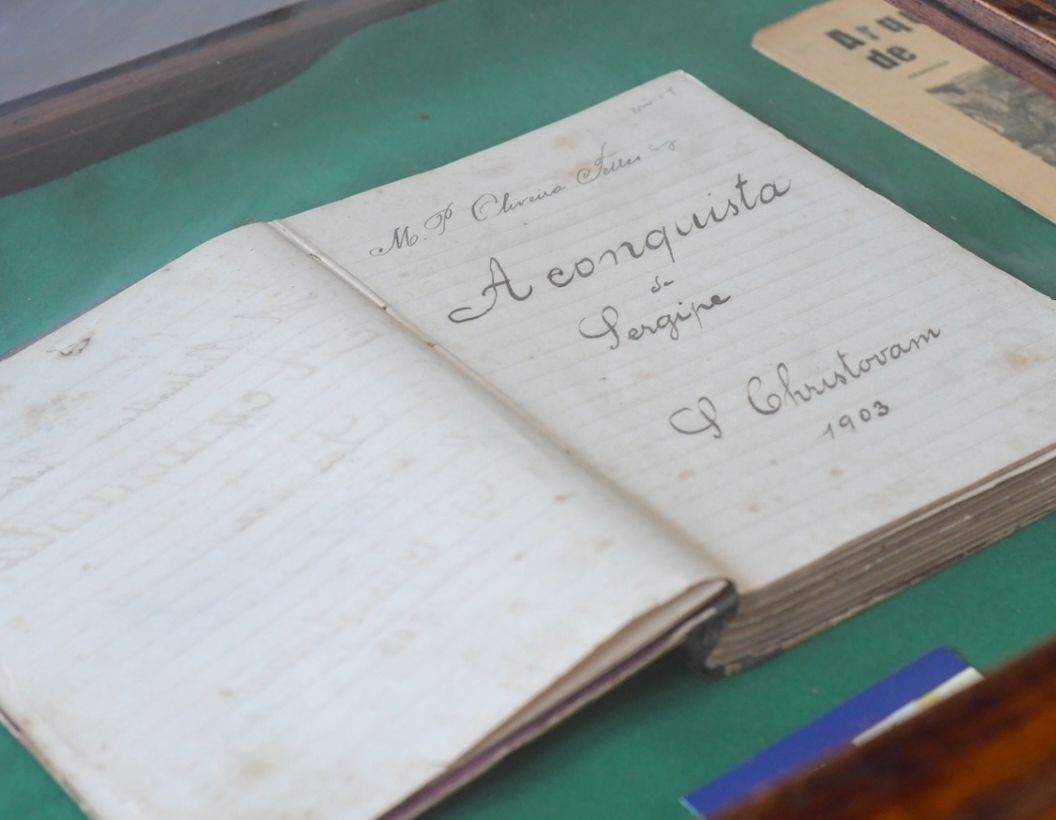 M. P. Oliveira Telles
A conquista
de
Sergipe
S Christovam
1903
de